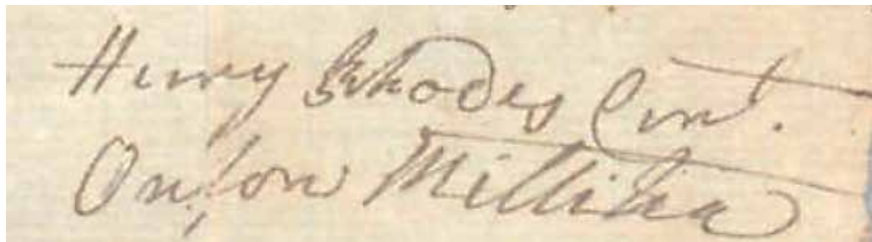 Henry Rhodes Cont.
Onslow Millitia